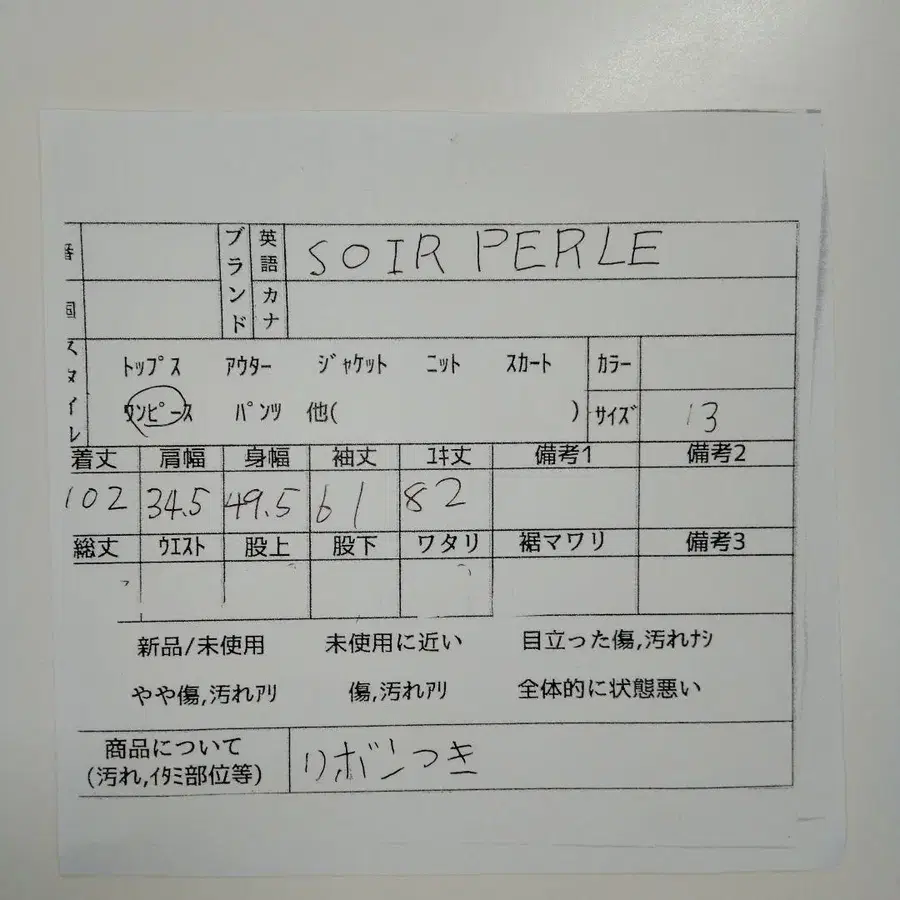 番 ブランド 英語 SOIR PERLE
カナ
スタイル トップス アウター ジャケット ニット スカート カラー
ワンピース パンツ 他( ) サイズ 13
着丈 肩幅 身幅 袖丈 ユキ丈 備考1 備考2
102 34.5 49.5 61 82
総丈 ウエスト 股上 股下 ワタリ 裾マワリ 備考3
新品/未使用 未使用に近い 目立った傷,汚れナシ
やや傷,汚れアリ 傷,汚れアリ 全体的に状態悪い
商品について リボンつき
(汚れ,イタミ部位等)